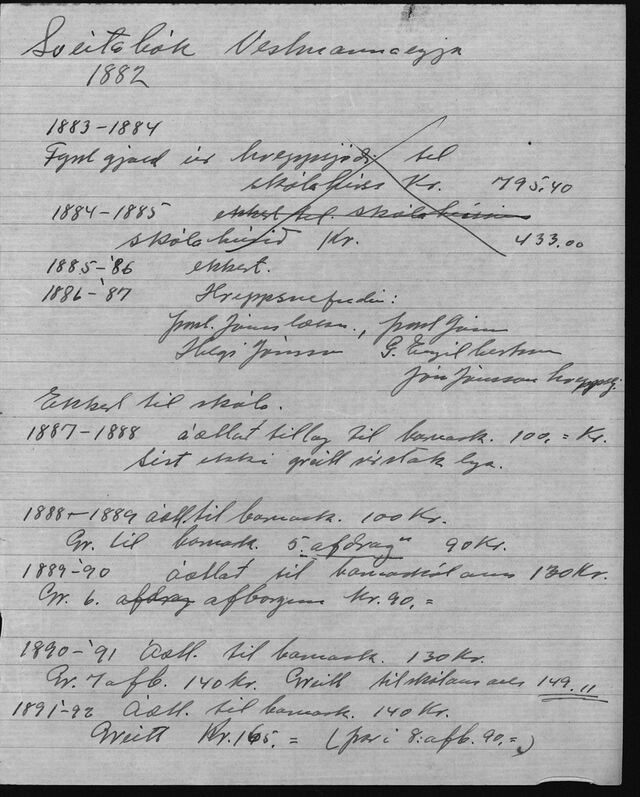 Sveitabók Vestmannaeyja
1882
1883-1884
gjald úr hreppsjóði til
skólahúss Kr. 795.40
1884-1885 ekkert til skólahússins
skólahúsið Kr. 433.00
1885-'86 ekkert.
1886-'87 Hreppsnefndin:
Helgi Jónsson G. Engilbertsson
Jón Jónsson hreppstj.
Ekkert til skóla.
1887-1888 áætlað tillag til barnask. 100,= Kr.
Sést ekki greitt
1888-1889 áætl. til barnask. 100 Kr.
Gr. til barnask. 5. afdrag" 90 Kr.
1889-'90 áætlað til barnaskólans 130 Kr.
Gr. 6. afdrag afborgun Kr. 90,=
1890-'91 Áætl. til barnask. 130 Kr.
Gr. 7 afb. 140 Kr. Greitt til skólans alls 149.11
1891-92 Áætl. til barnask. 140 Kr.
Greitt Kr. 165.= (þar í 8. afb. 90,=)